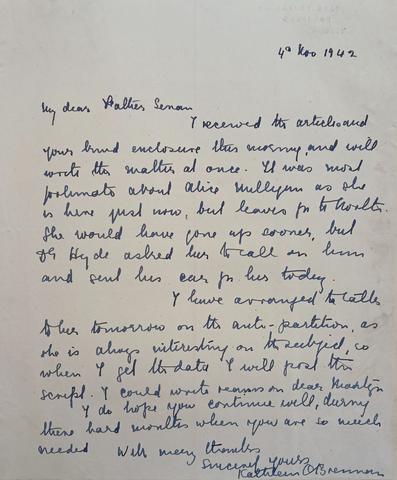 4th Nov 1942
My dear Father Senan
I received the articles and
your kind enclosure this morning, and will
write the matter at once. It was most
fortunate about Alice Milligan as she
is here just now, but leaves for the North.
She would have gone up sooner, but
Dr Hyde asked her to call on him
and sent his car for her today.
I have arranged to talk
to her tomorrow on the anti-partition, as
she is always interesting on the subject, so
when I get the data I will post the
script. I could write reams on dear
I do hope you continue well, during
these hard months when you are so much
needed With many thanks
Sincerely yours
Kathleen O'Brennan